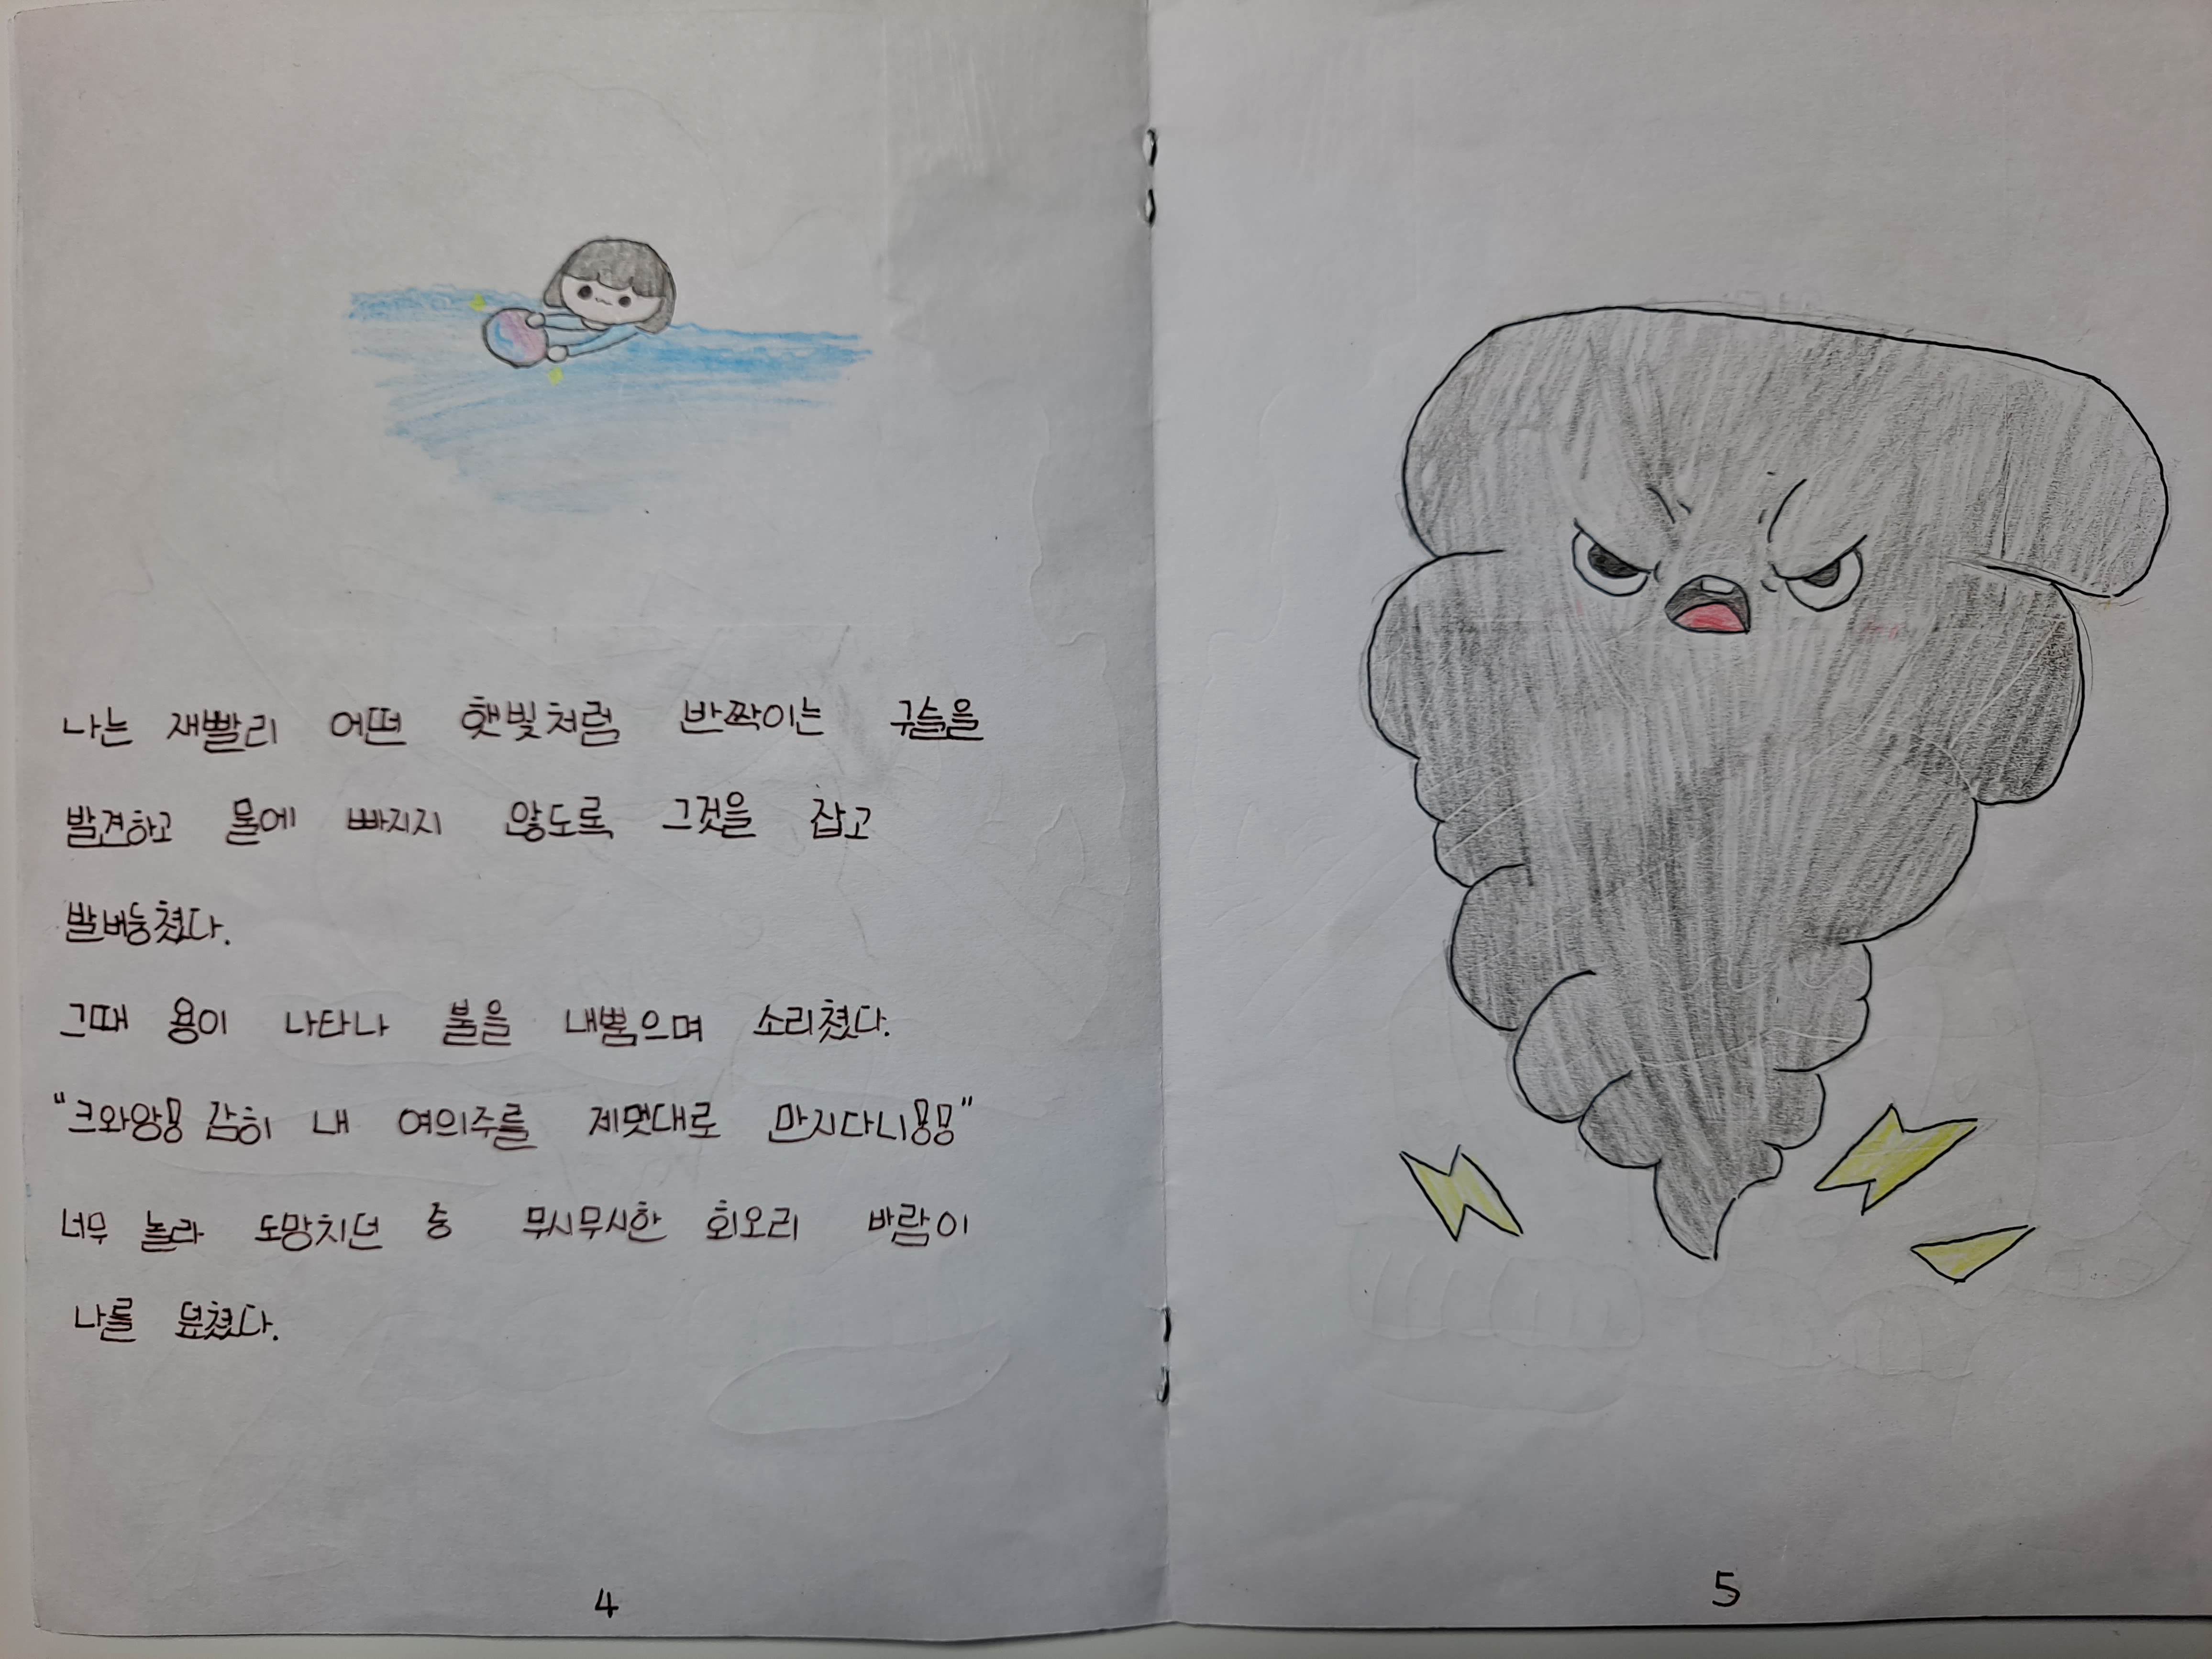 나는 재빨리 어떤 햇빛처럼 반짝이는 구슬을
발견하고 물에 빠지지 않도록 그것을 잡고
발버둥쳤다.
그때 용이 나타나 불을 내뿜으며 소리쳤다.
"크와앙! 감히 내 여의주를 제멋대로 만지다니!!"
너무 놀라 도망치던 중 무시무시한 회오리 바람이
나를 덮쳤다.
4
5